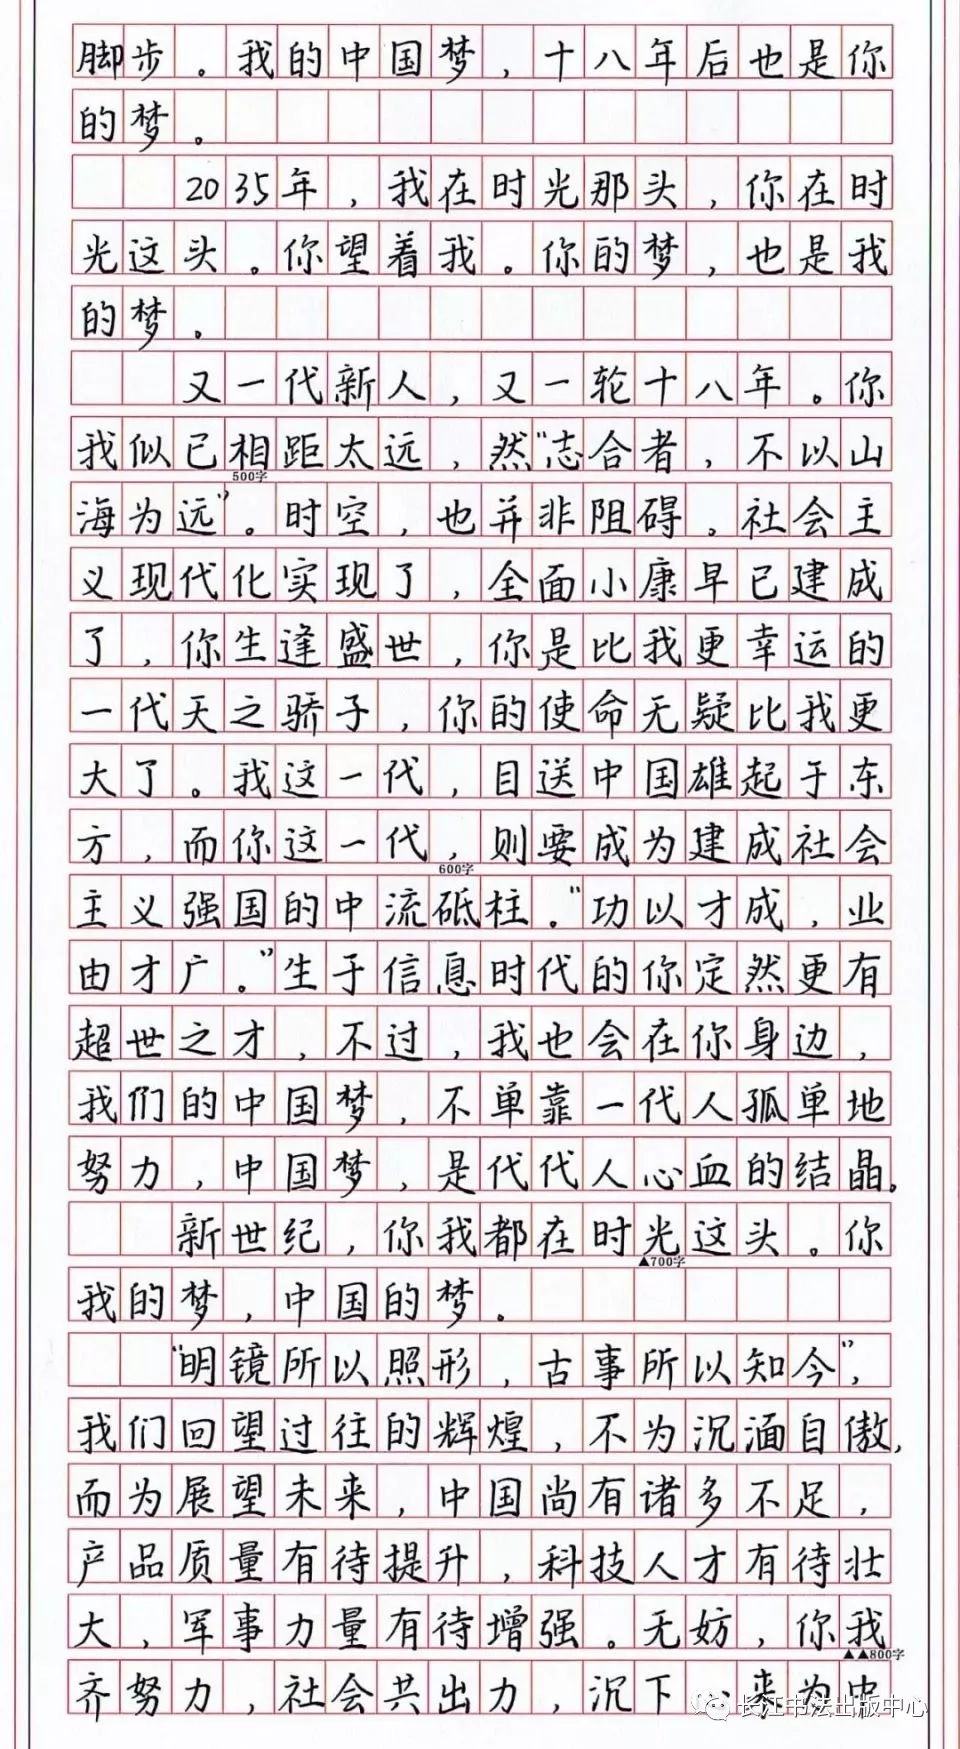 脚步。我的中国梦,十八年后也是你
的梦。
2035年,我在时光那头,你在时
光这头。你望着我。你的梦,也是我
的梦。
又一代新人,又一轮十八年。你
我似已相距太远,然“志合者,不以山
500字
海为远”。时空,也并非阻碍。社会主
义现代化实现了,全面小康早已建成
了,你生逢盛世,你是比我更幸运的
一代天之骄子,你的使命无疑比我更
大了。我这一代,目送中国雄起于东
方,而你这一代,则要成为建成社会
600字
主义强国的中流砥柱。“功以才成,业
由才广。”生于信息时代的你定然更有
超世之才,不过,我也会在你身边,
我们的中国梦,不单靠一代人孤单地
努力,中国梦,是代代人心血的结晶。
新世纪,你我都在时光这头。你
▲700字
我的梦,中国的梦。
“明镜所以照形,古事所以知今”,
我们回望过往的辉煌,不为沉湎自傲,
而为展望未来,中国尚有诸多不足,
产品质量有待提升,科技人才有待壮
大,军事力量有待增强。无妨,你我
▲▲800字
齐努力,社会共出力,沉下心来为中
长江书法出版中心